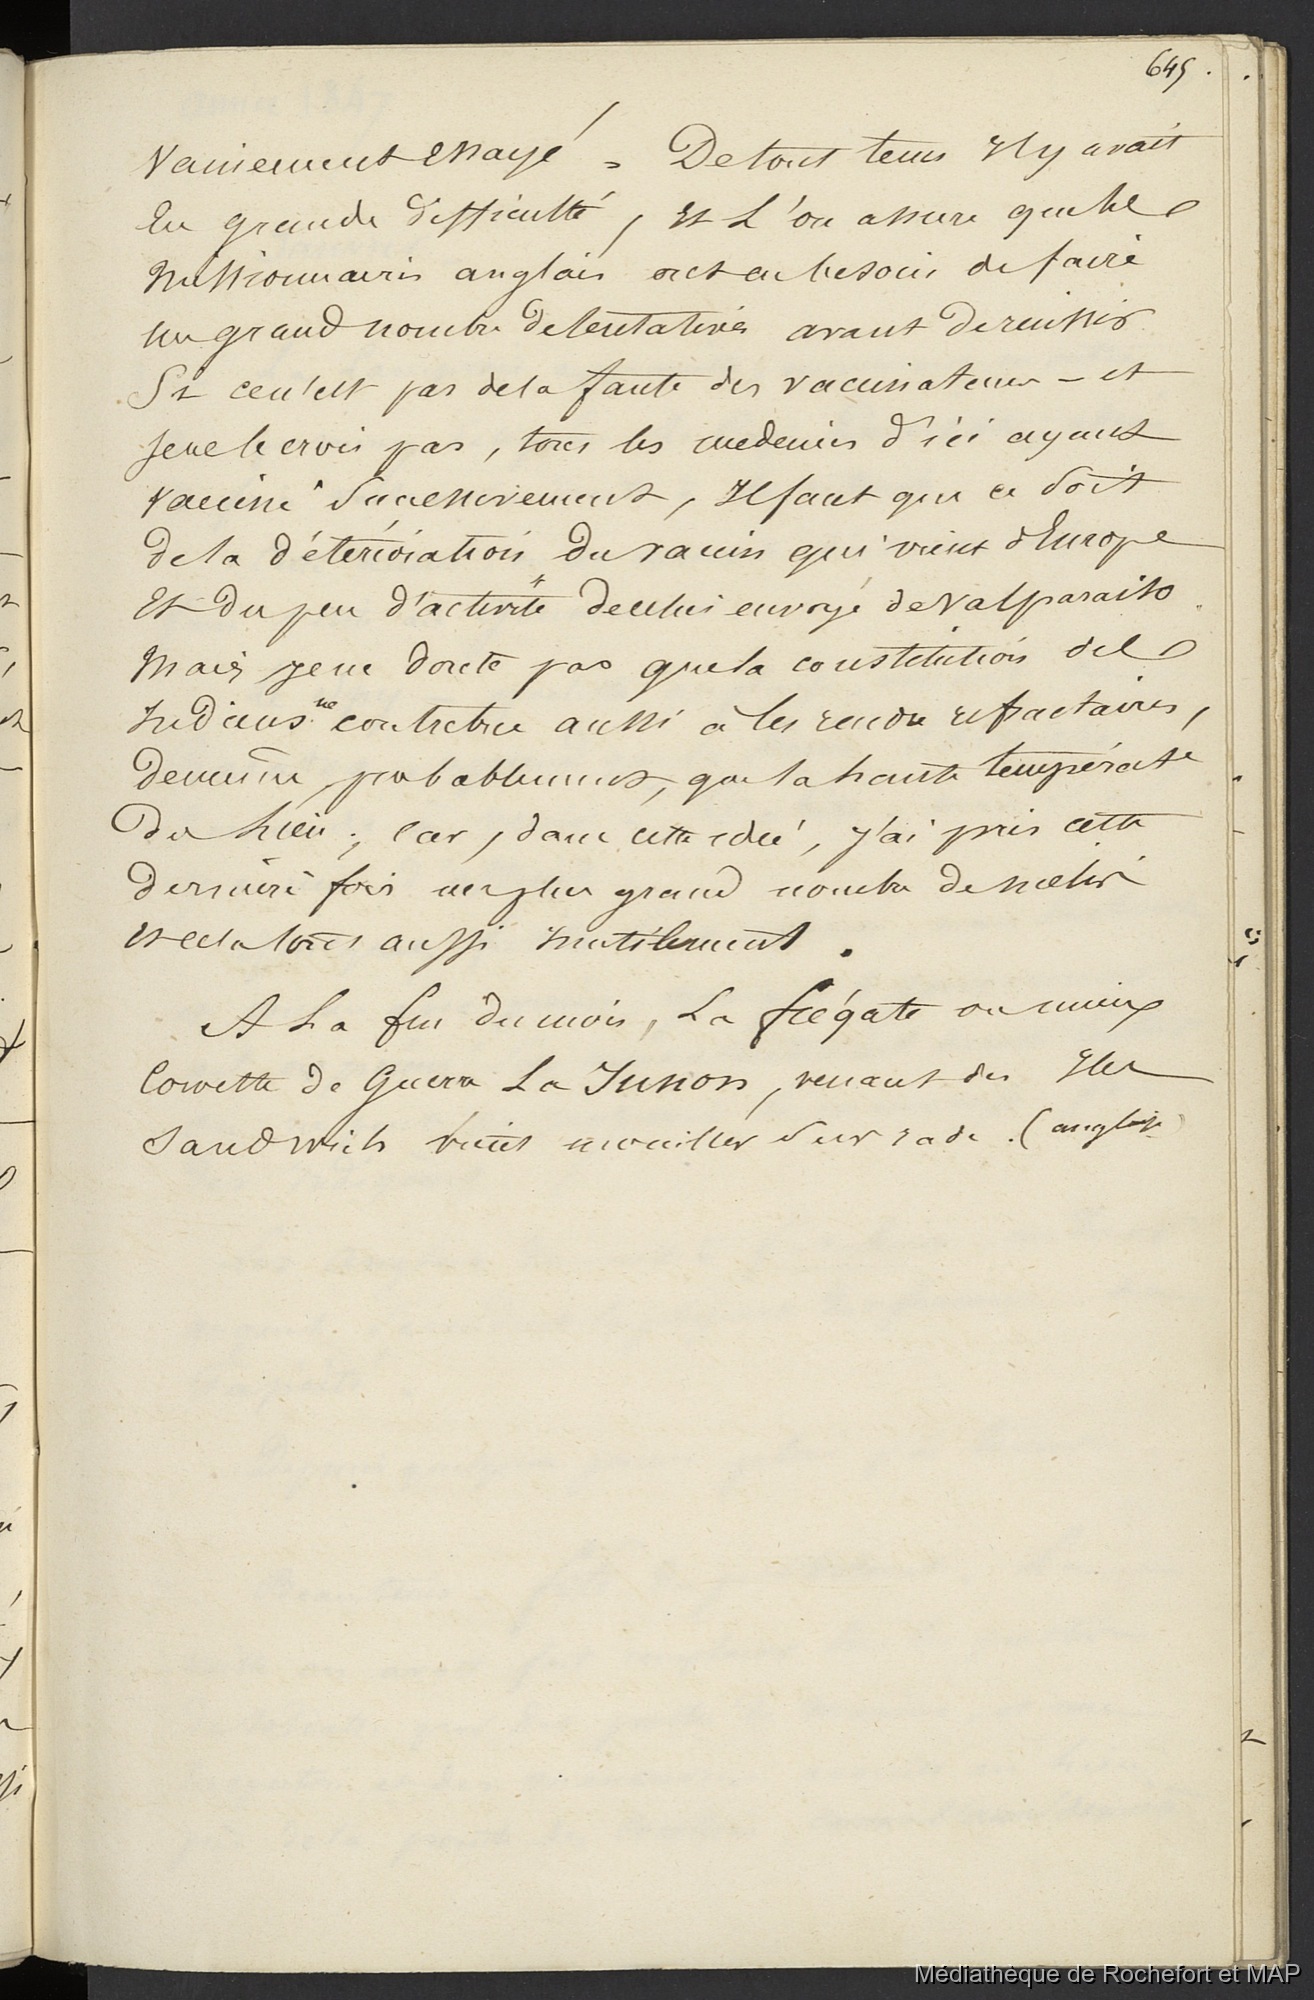 645.
vainement essayé. De tout tems Il y avait
Eu grande difficulté, Et L'on assure que le
Missionnaires anglais ont eu besoin de faire
un grand nombre de tentatives avant de reussir
Si ce n'est pas de la faute des vaccinateurs - et
je ne le crois pas, tous les medecins d'ici ayant
vacciné successivement, Il faut que ce soit
de la déterioration du vaccin qui vient d'Europe
Et du peu d'activité de celui envoyé de Valparaiso
Mais je ne doute pas que la constitution del
Indiens ne contribue aussi à les rendre refractaires,
de même, probablement, que la haute températ.e
du lieu; Car, dans cette idée, j'ai pris cette
derniere fois un plus grand nombre de metis
Et cela tout aussi Inutilement.
A La fin du mois, La frégate ou mieux
Corvette de Guerre La Junon, venant des Iles
Sandwich vient mouiller sur rade. (anglaise)
Médiathèque de Rochefort et MAP